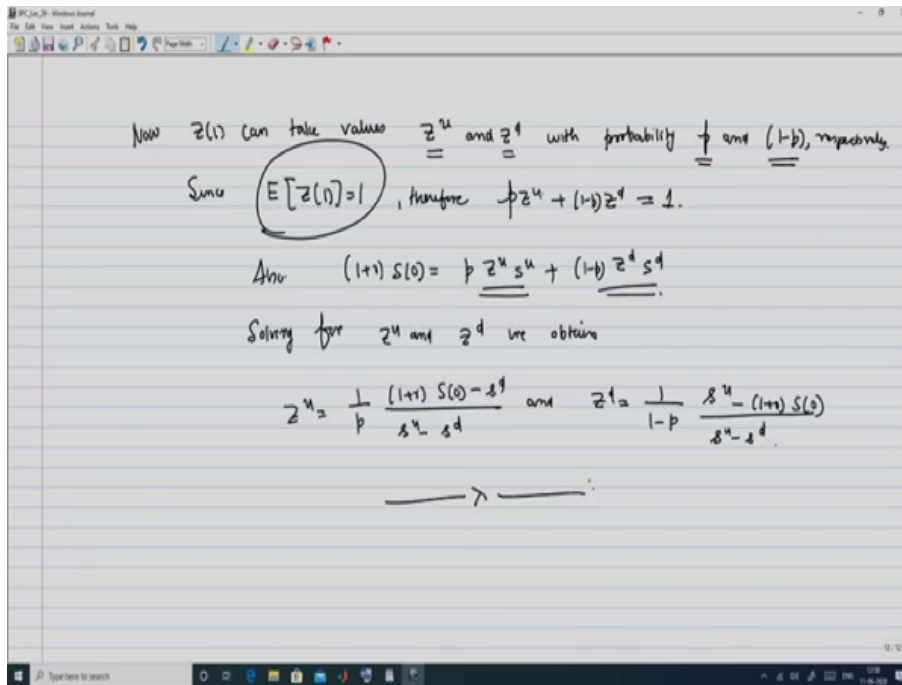 IPC_Lec_29 - Windows Journal
File Edit View Insert Actions Tools Help
Page Width
Now Z(1) can take values Z^u and Z^d with probability p and (1-p), respectively.
Since E[Z(1)]=1, therefore pZ^u + (1-p)Z^d = 1.
Also (1+r) S(0) = p Z^u S^u + (1-p) Z^d S^d.
Solving for Z^u and Z^d we obtain
Z^u = 1/p ((1+r) S(0) - s^d)/(s^u - s^d) and Z^d = 1/(1-p) (s^u - (1+r) S(0))/(s^u - s^d).
12/12
Type here to search
ENG 12:58
11-06-2020